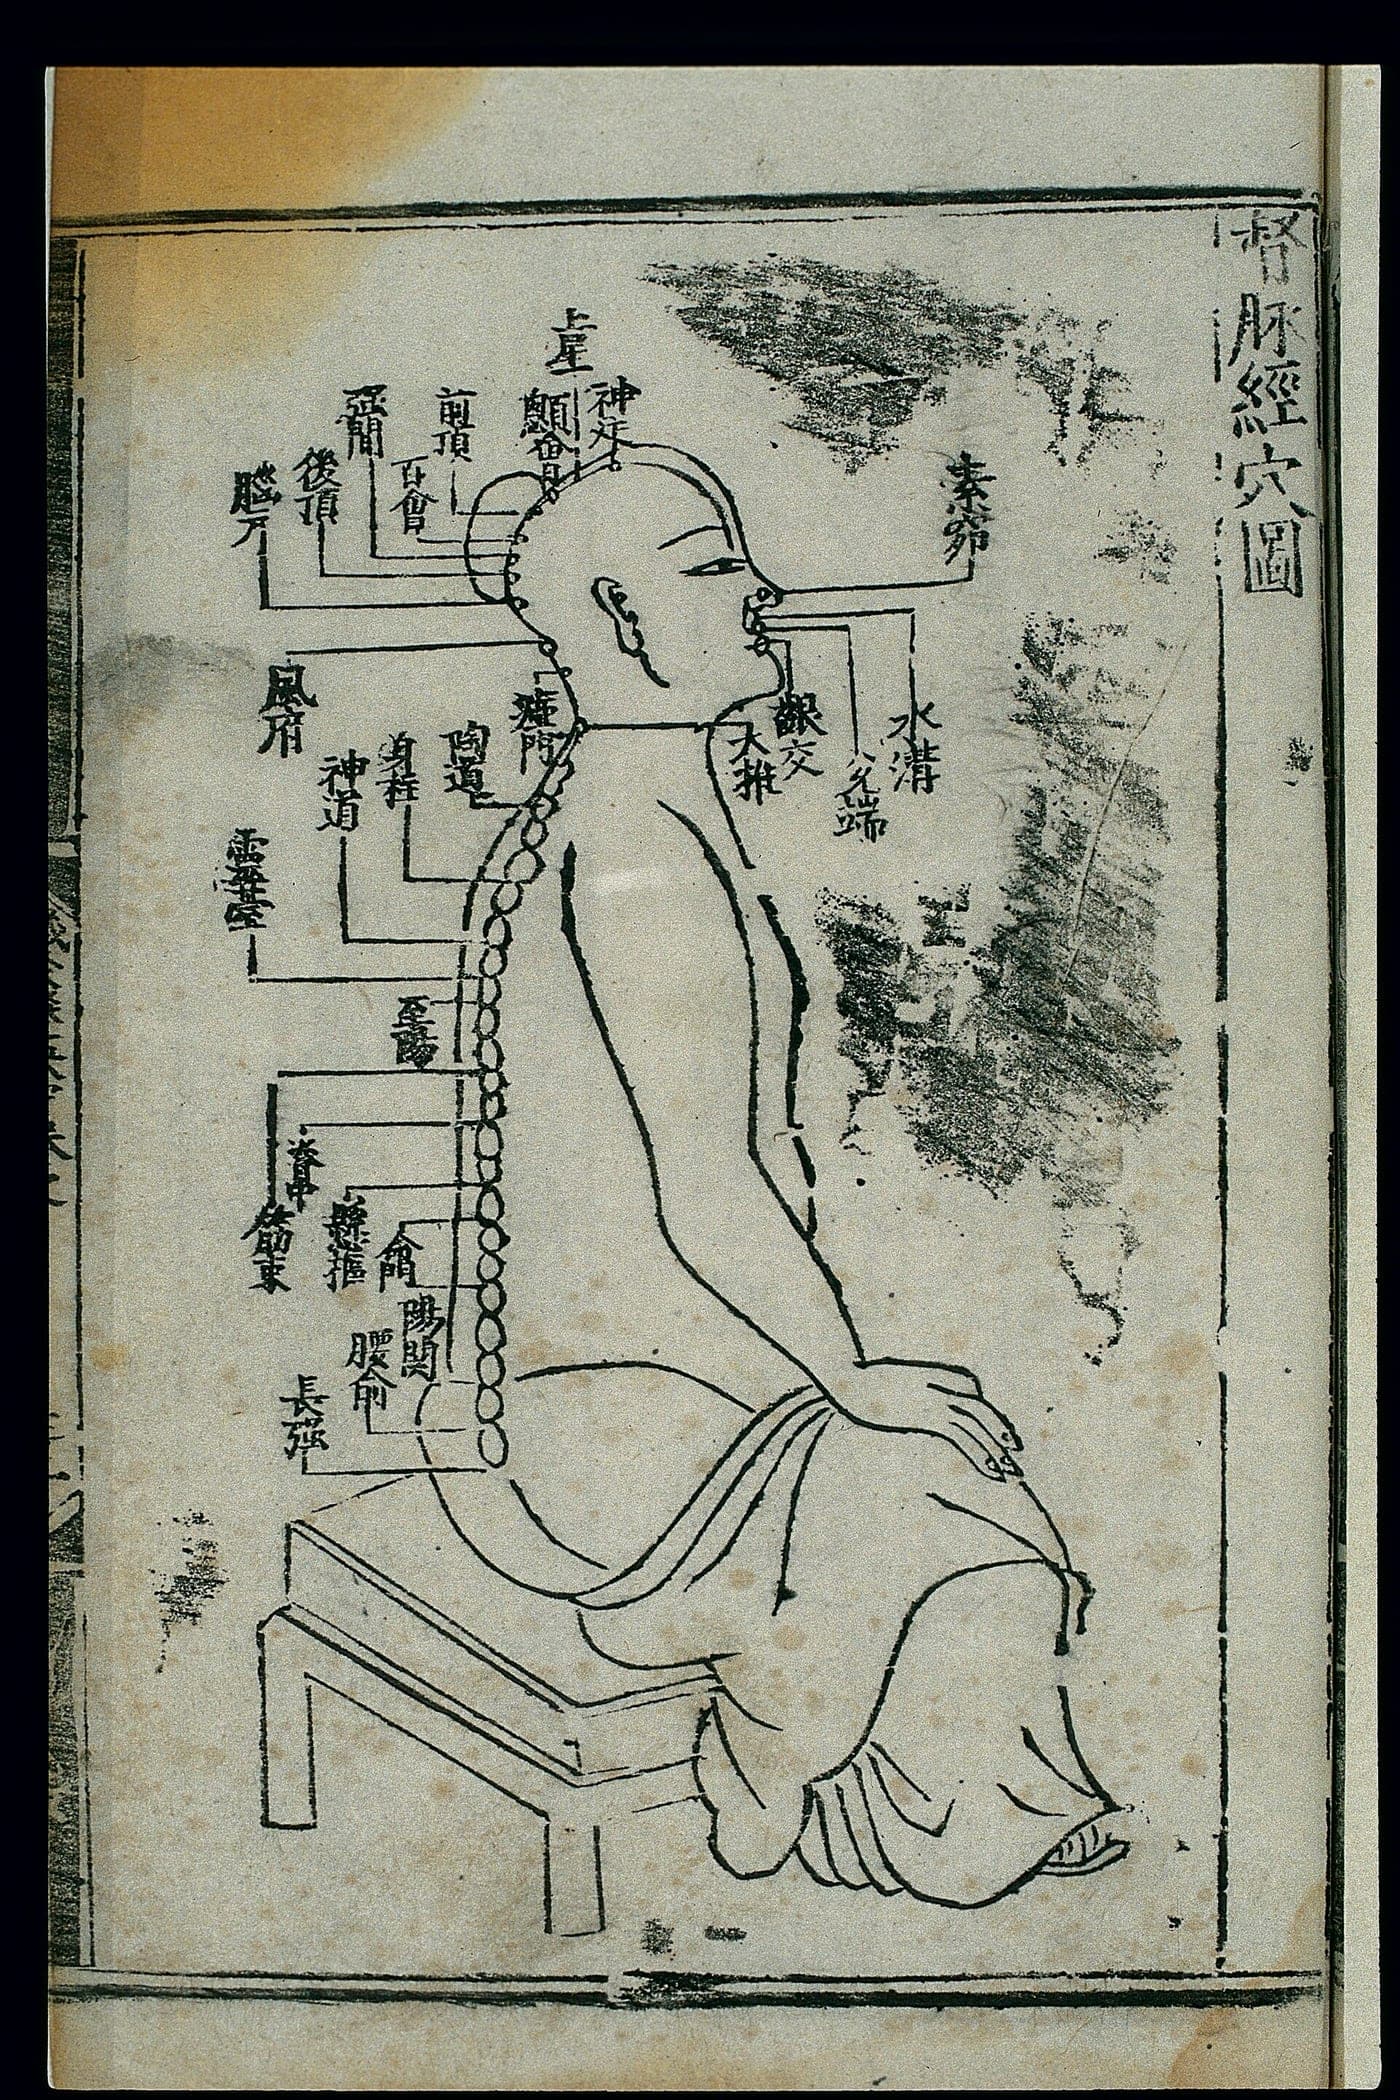 督脉經穴圖
素窌
水溝
兊端
齦交
大推
神𢓜
上星
顖會
前頂
百會
後頂
腦戸
風府
瘂門
陶道
身柱
神道
靈臺
至陽
筋束
脊中
懸樞
命門
陽関
腰俞
長强